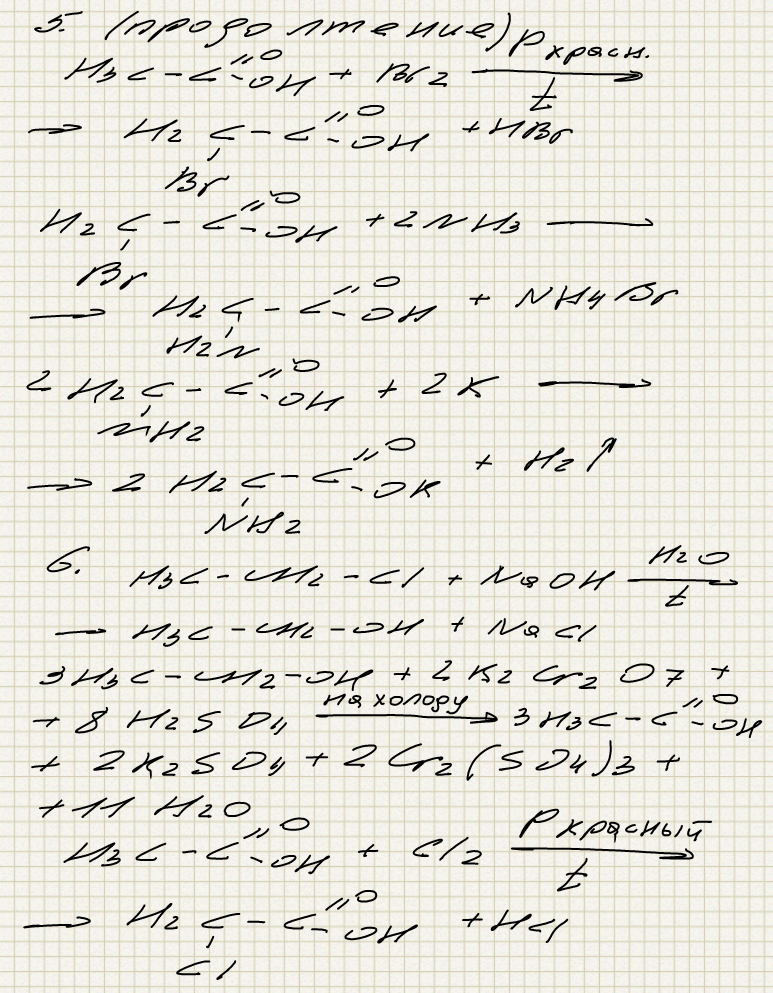 5. (продолжение) P красн.
H3C - C =O -OH + Br2 → t
→ H2C - C =O -OH + HBr
Br
H2C - C =O -OH + 2NH3 →
Br
→ H2C - C =O -OH + NH4Br
H2N
2 H2C - C =O -OH + 2K →
NH2
→ 2 H2C - C =O -OK + H2↑
NH2
6. H3C - CH2 - Cl + NaOH → H2O t
→ H3C - CH2 - OH + NaCl
3H3C - CH2 - OH + 2K2Cr2O7 +
+ 8 H2SO4 на холоду → 3H3C - C =O -OH
+ 2K2SO4 + 2Cr2(SO4)3 +
+ 11 H2O
H3C - C =O -OH + Cl2 P красный → t
→ H2C - C =O -OH + HCl
Cl